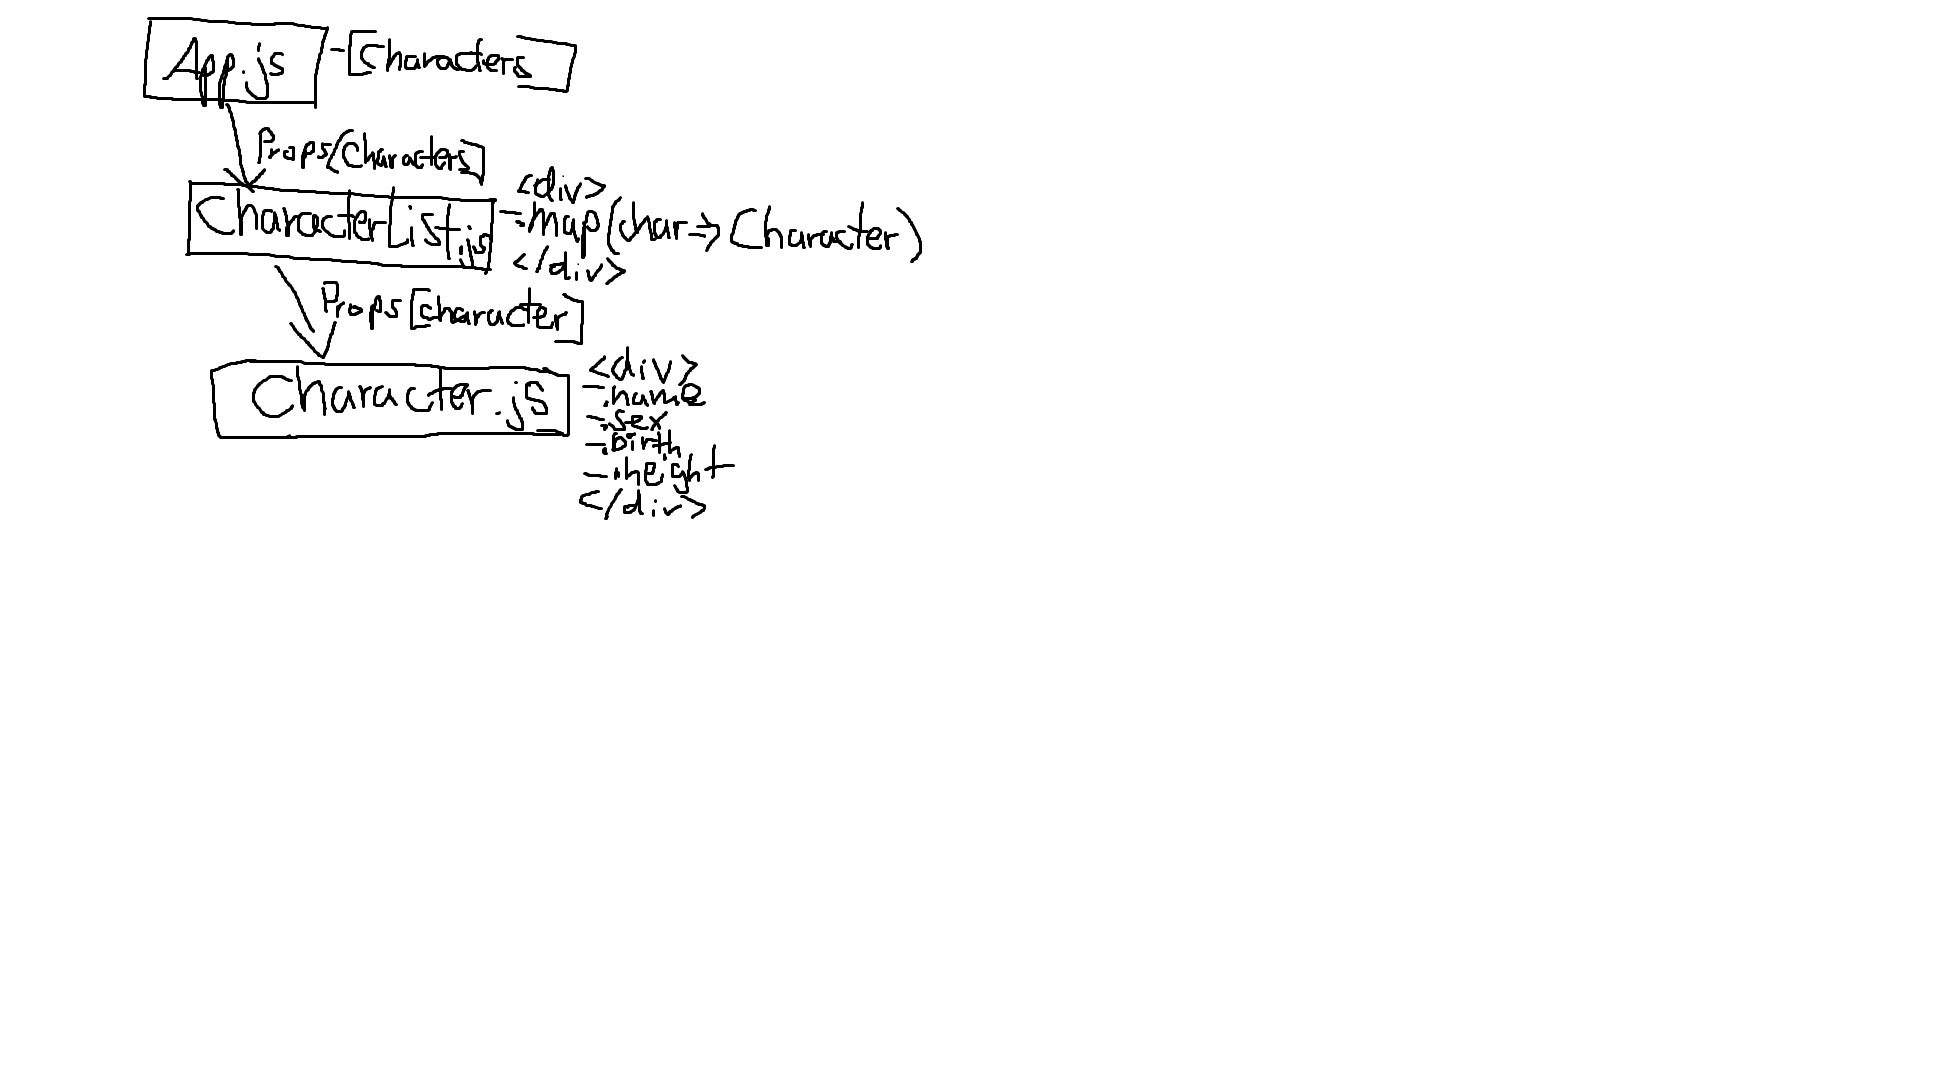 App.js -[Characters]
Props[Characters]
CharacterList.js
<div>
-.map(char=>Character)
</div>
Props[character]
Character.js
<div>
-.name
-.sex
-.birth
-.height
</div>